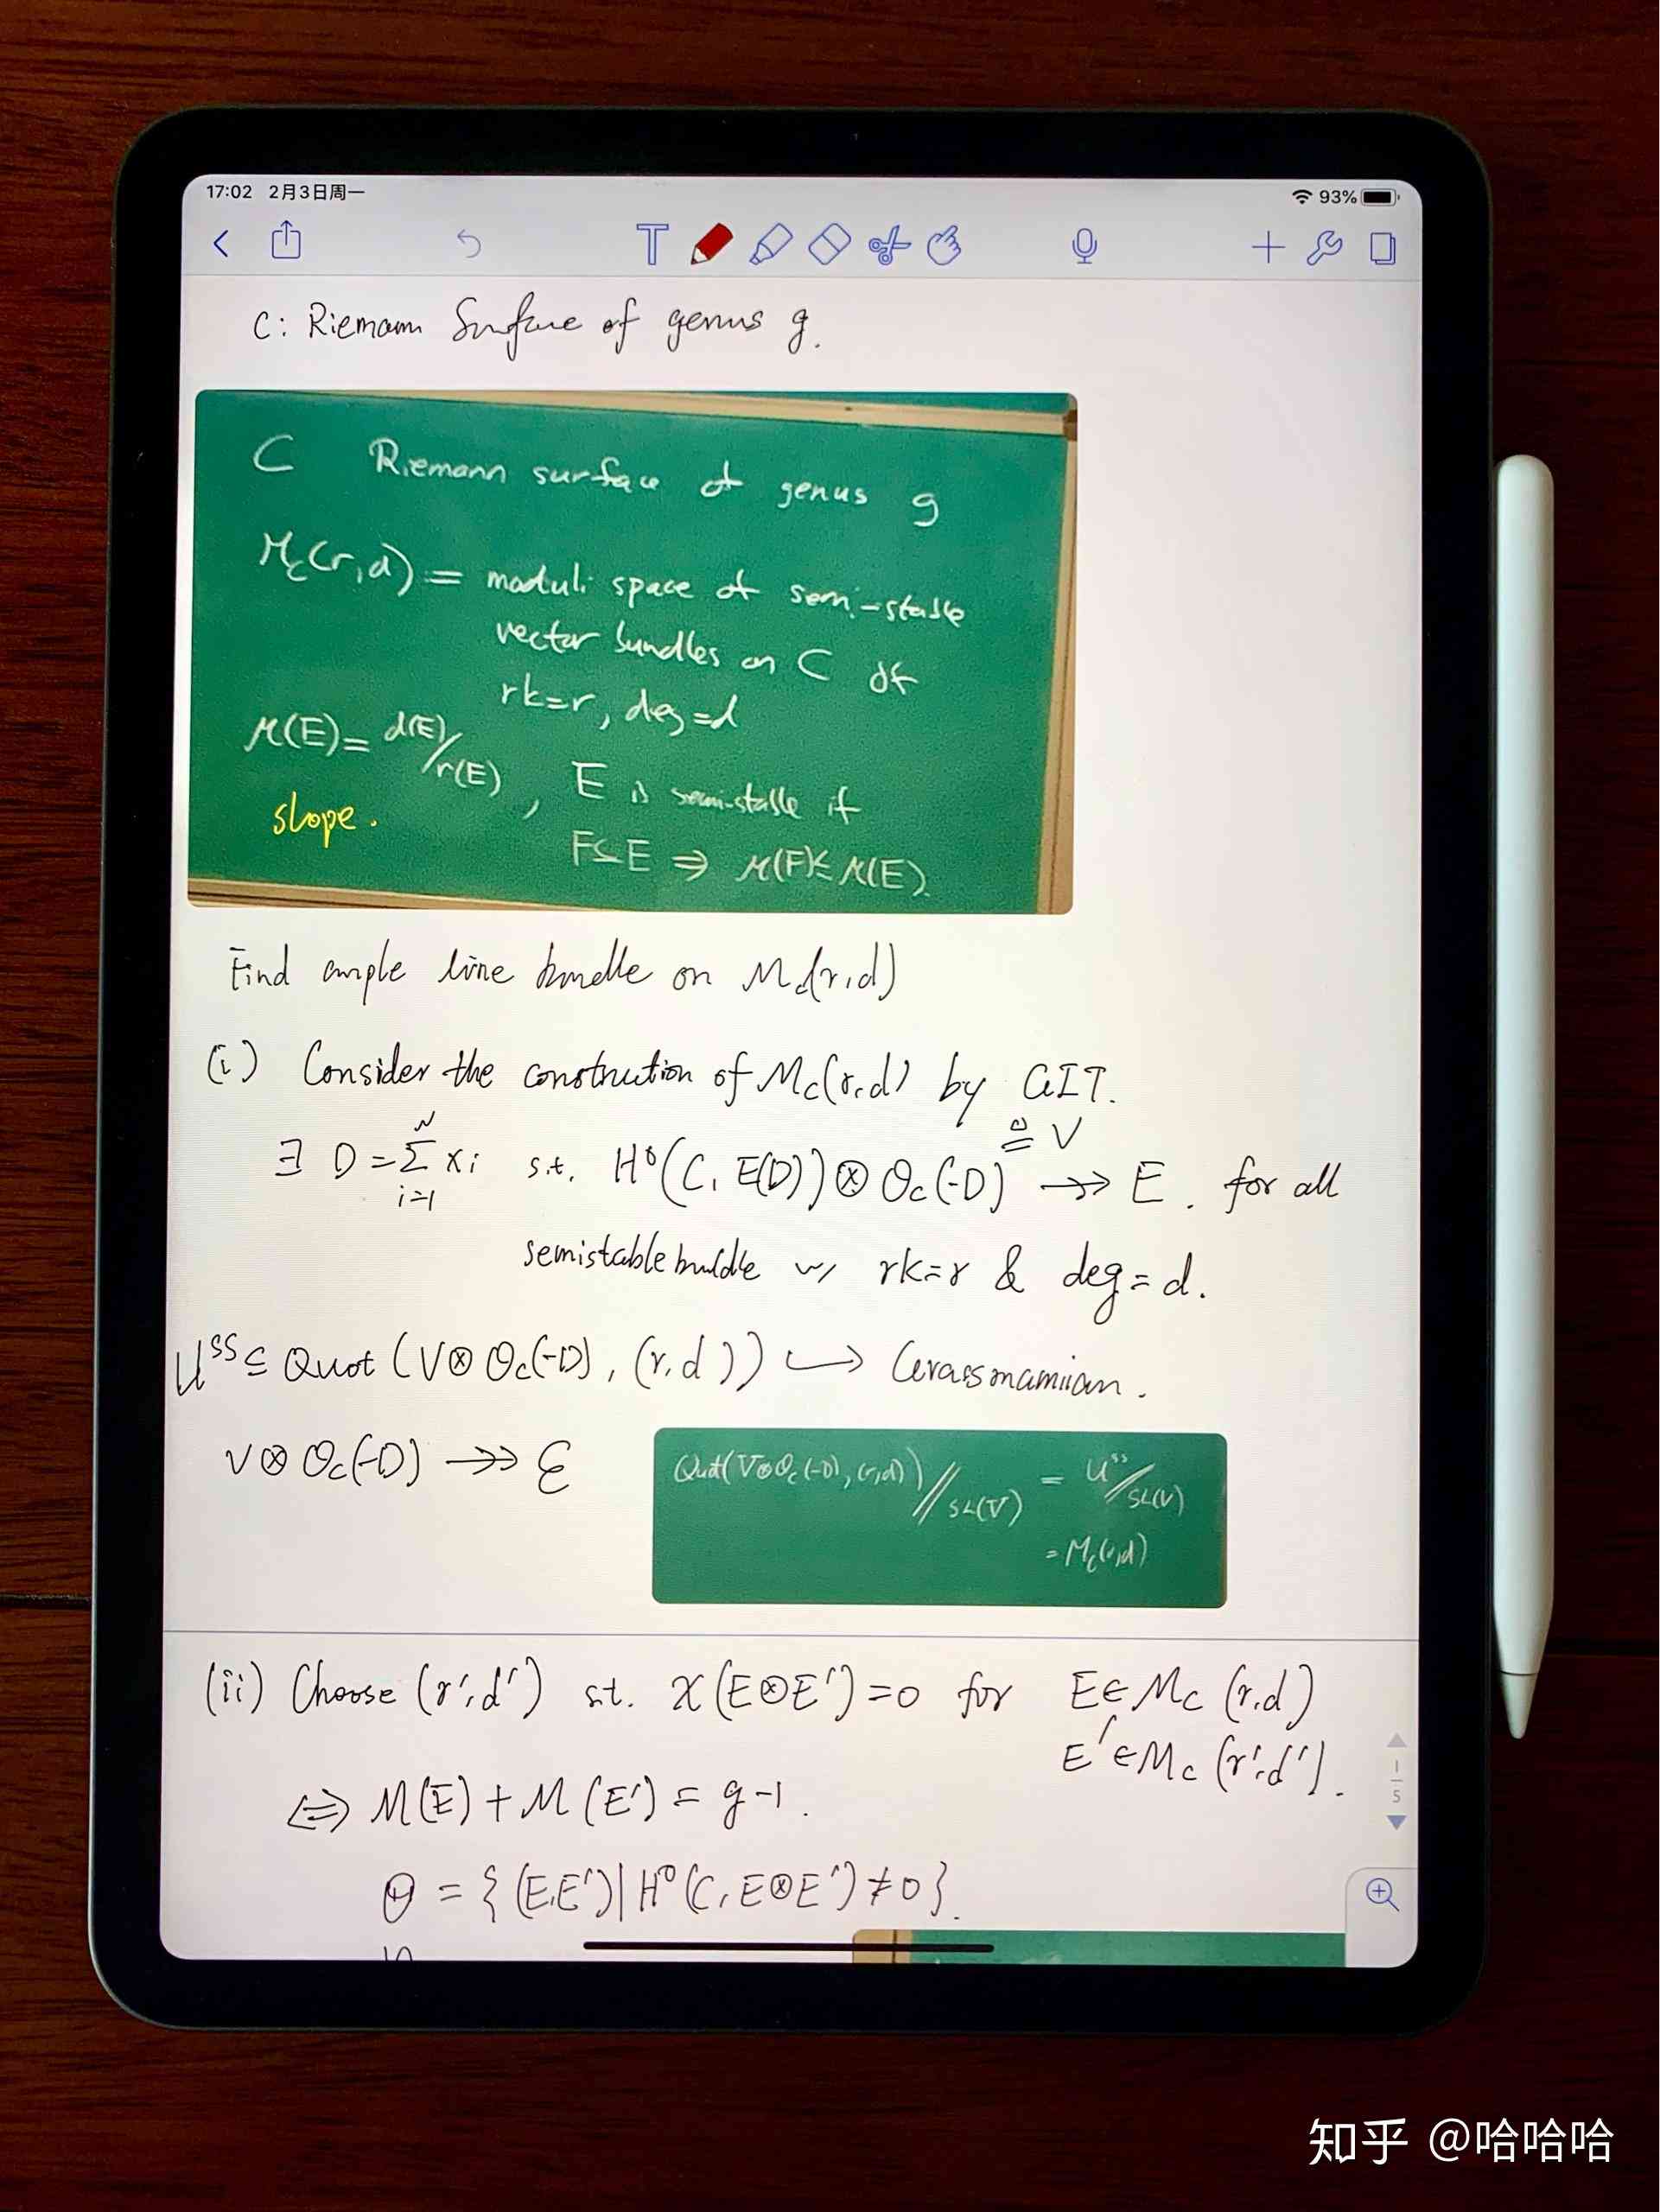 17:02 2月3日周一
93%
C: Riemann Surface of genus g.
C Riemann surface of genus g
M_C(r,d) = moduli space of semi-stable
vector bundles on C of
rk=r, deg=d
μ(E) = d(E)/r(E), E is semi-stable if
slope.
F⊆E ⇒ μ(F)≤μ(E).
Find ample line bundle on M_C(r,d)
(i) Consider the construction of M_C(r,d) by GIT.
≅ V
∃ D = Σ_{i=1}^N x_i s.t. H⁰(C, E(D)) ⊗ O_C(-D) ↠ E. for all
semistable buldle w/ rk=r & deg=d.
U^{SS} ⊆ Quot (V⊗O_C(-D), (r,d)) ↪ Grassmannian.
V⊗O_C(-D) ↠ ℰ
Quot(V⊗O_C(-D), (r,d))//SL(V) = U^{ss}/SL(V)
= M_C(r,d)
(ii) Choose (r',d') s.t. χ(E⊗E')=0 for E∈M_C (r,d)
E'∈M_C (r',d').
⇔ μ(E) + μ(E') = g-1.
Θ = {(E,E')| H⁰(C, E⊗E') ≠ 0}.
1
5
知乎 @哈哈哈